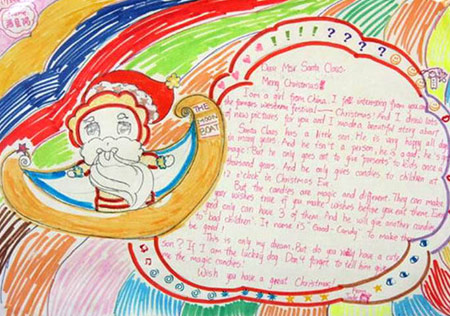 ! ! ! ! ? ? ? ?
Dear Mr Santa Claus:
Merry Christmas!!!
I am a girl from China. I felt interesting from you and
the famous western festival —— Christmas! And I drew lots
of new pictures for you and I wrote a beautiful story about
Santa Claus has a little son. He is very happy all day
years. And he isn't a person, he is a god; he's
magic! But he only goes out to give presents to kids once
thousand years. And he only gives candies to children at
12 o'clock in Christmas Eve.
But the candies are magic and different. They can make
your wishes true if you make wishes before you eat them. Every
good only can have 3 of them. And he will give another candies
to "bad children". It name is "Good-Candy". To make them
be good!
This is only my dream. But do you really have a cute
son? If I am the lucky dog. Don't forget to tell him give
me the magic candies!
Wish you have a great Christmas!
From:
THE
MOON
BOAT